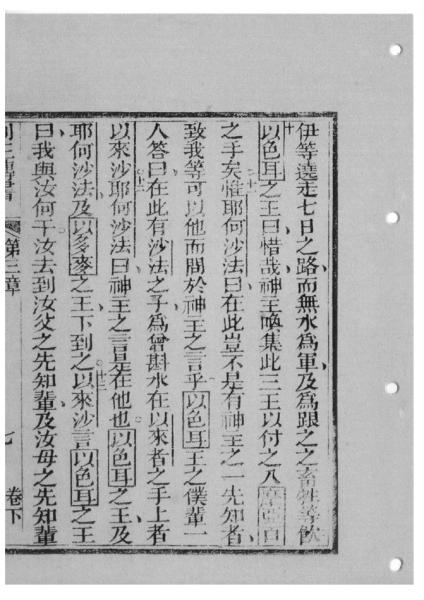 伊等遶走七日之路而無水為軍及為跟之之畜牲等飲
十以色耳之王曰惜哉神王喚集此三王以付之入摩亞百
之手矣十一惟耶何沙法曰在此豈不是有神王之一先知者
致我等可以他而問於神王之言乎以色耳王之僕輩一
人答曰在此有沙法之子為曾斟水在以來者之手上者
以來沙十二耶何沙法曰神王之言是在他也以色耳之王及
耶何沙法及以多麥之王下到之十三以來沙言以色耳之王
曰我與汝何干汝去到汝父之先知輩及汝母之先知輩
第三章 七 卷下